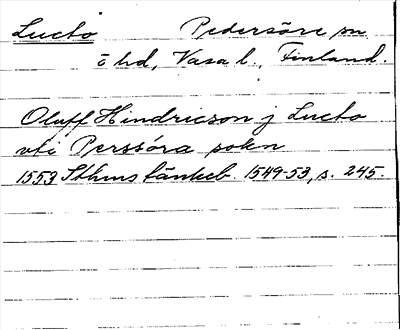 Lucto Pedersöre sn
ö hd, Vasa l., Finland.
Oluff Hindricson j Lucto
vti Perssöra sokn
1553 Sthms tänkeb. 1549-53, s. 245.